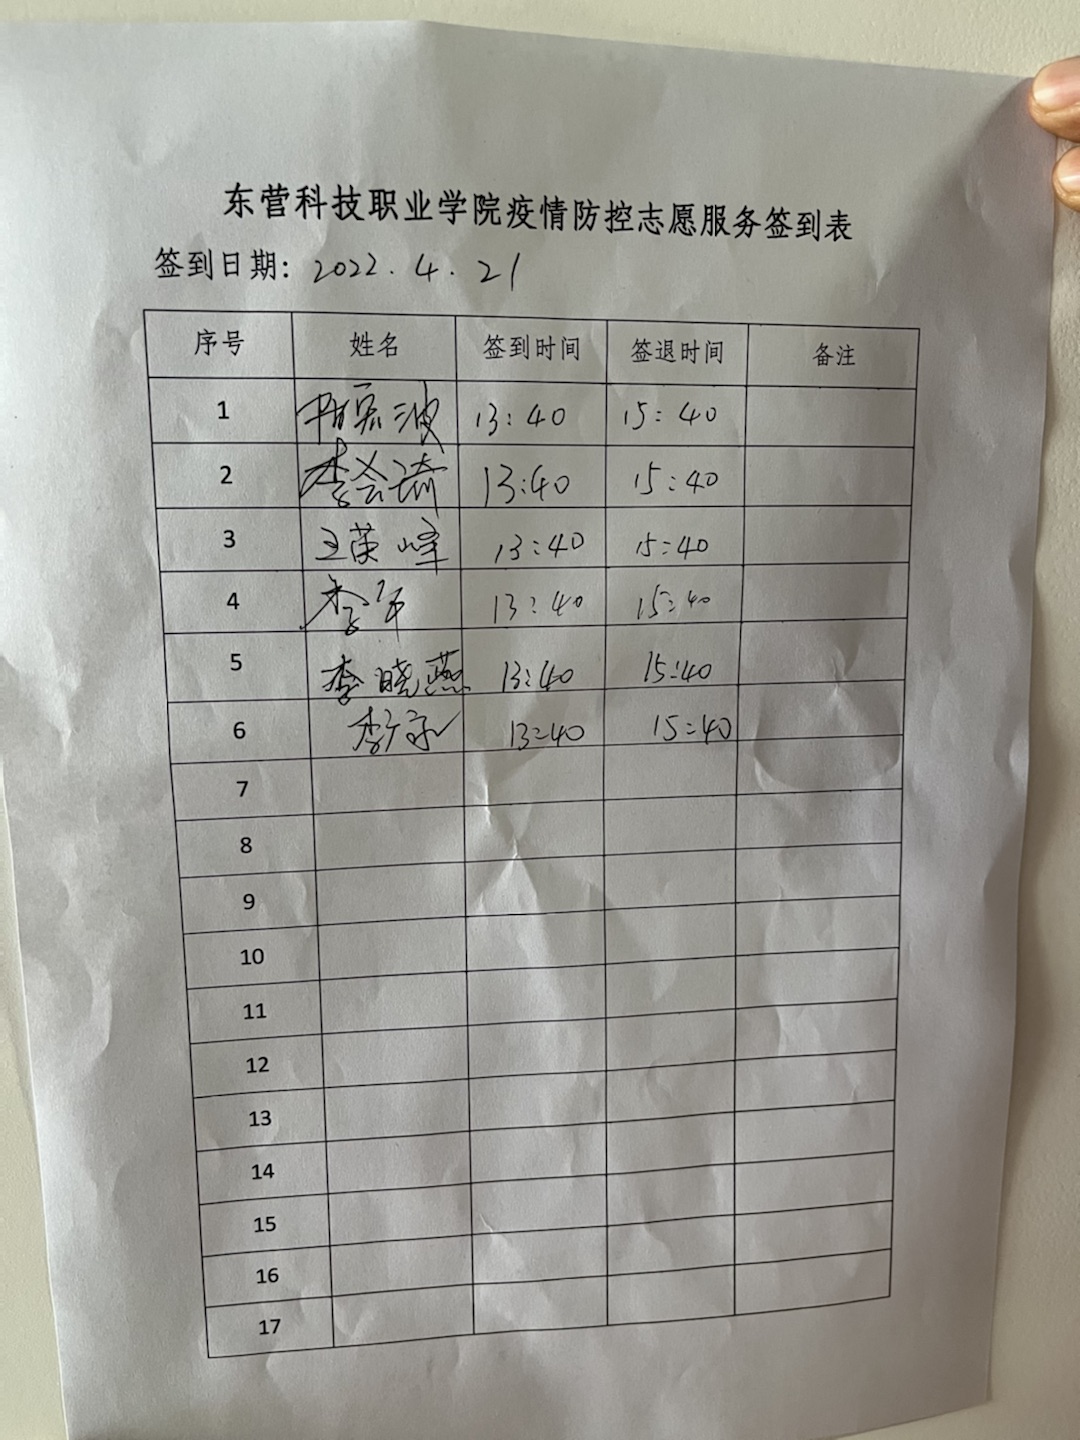 东营科技职业学院疫情防控志愿服务签到表
签到日期: 2022.4.21
序号 姓名 签到时间 签退时间 备注
1 13:40 15:40
2 李会琦 13:40 15:40
3 王荣峰 13:40 15:40
4 李军 13:40 15:40
5 李晓燕 13:40 15:40
6 13:40 15:40
7
8
9
10
11
12
13
14
15
16
17